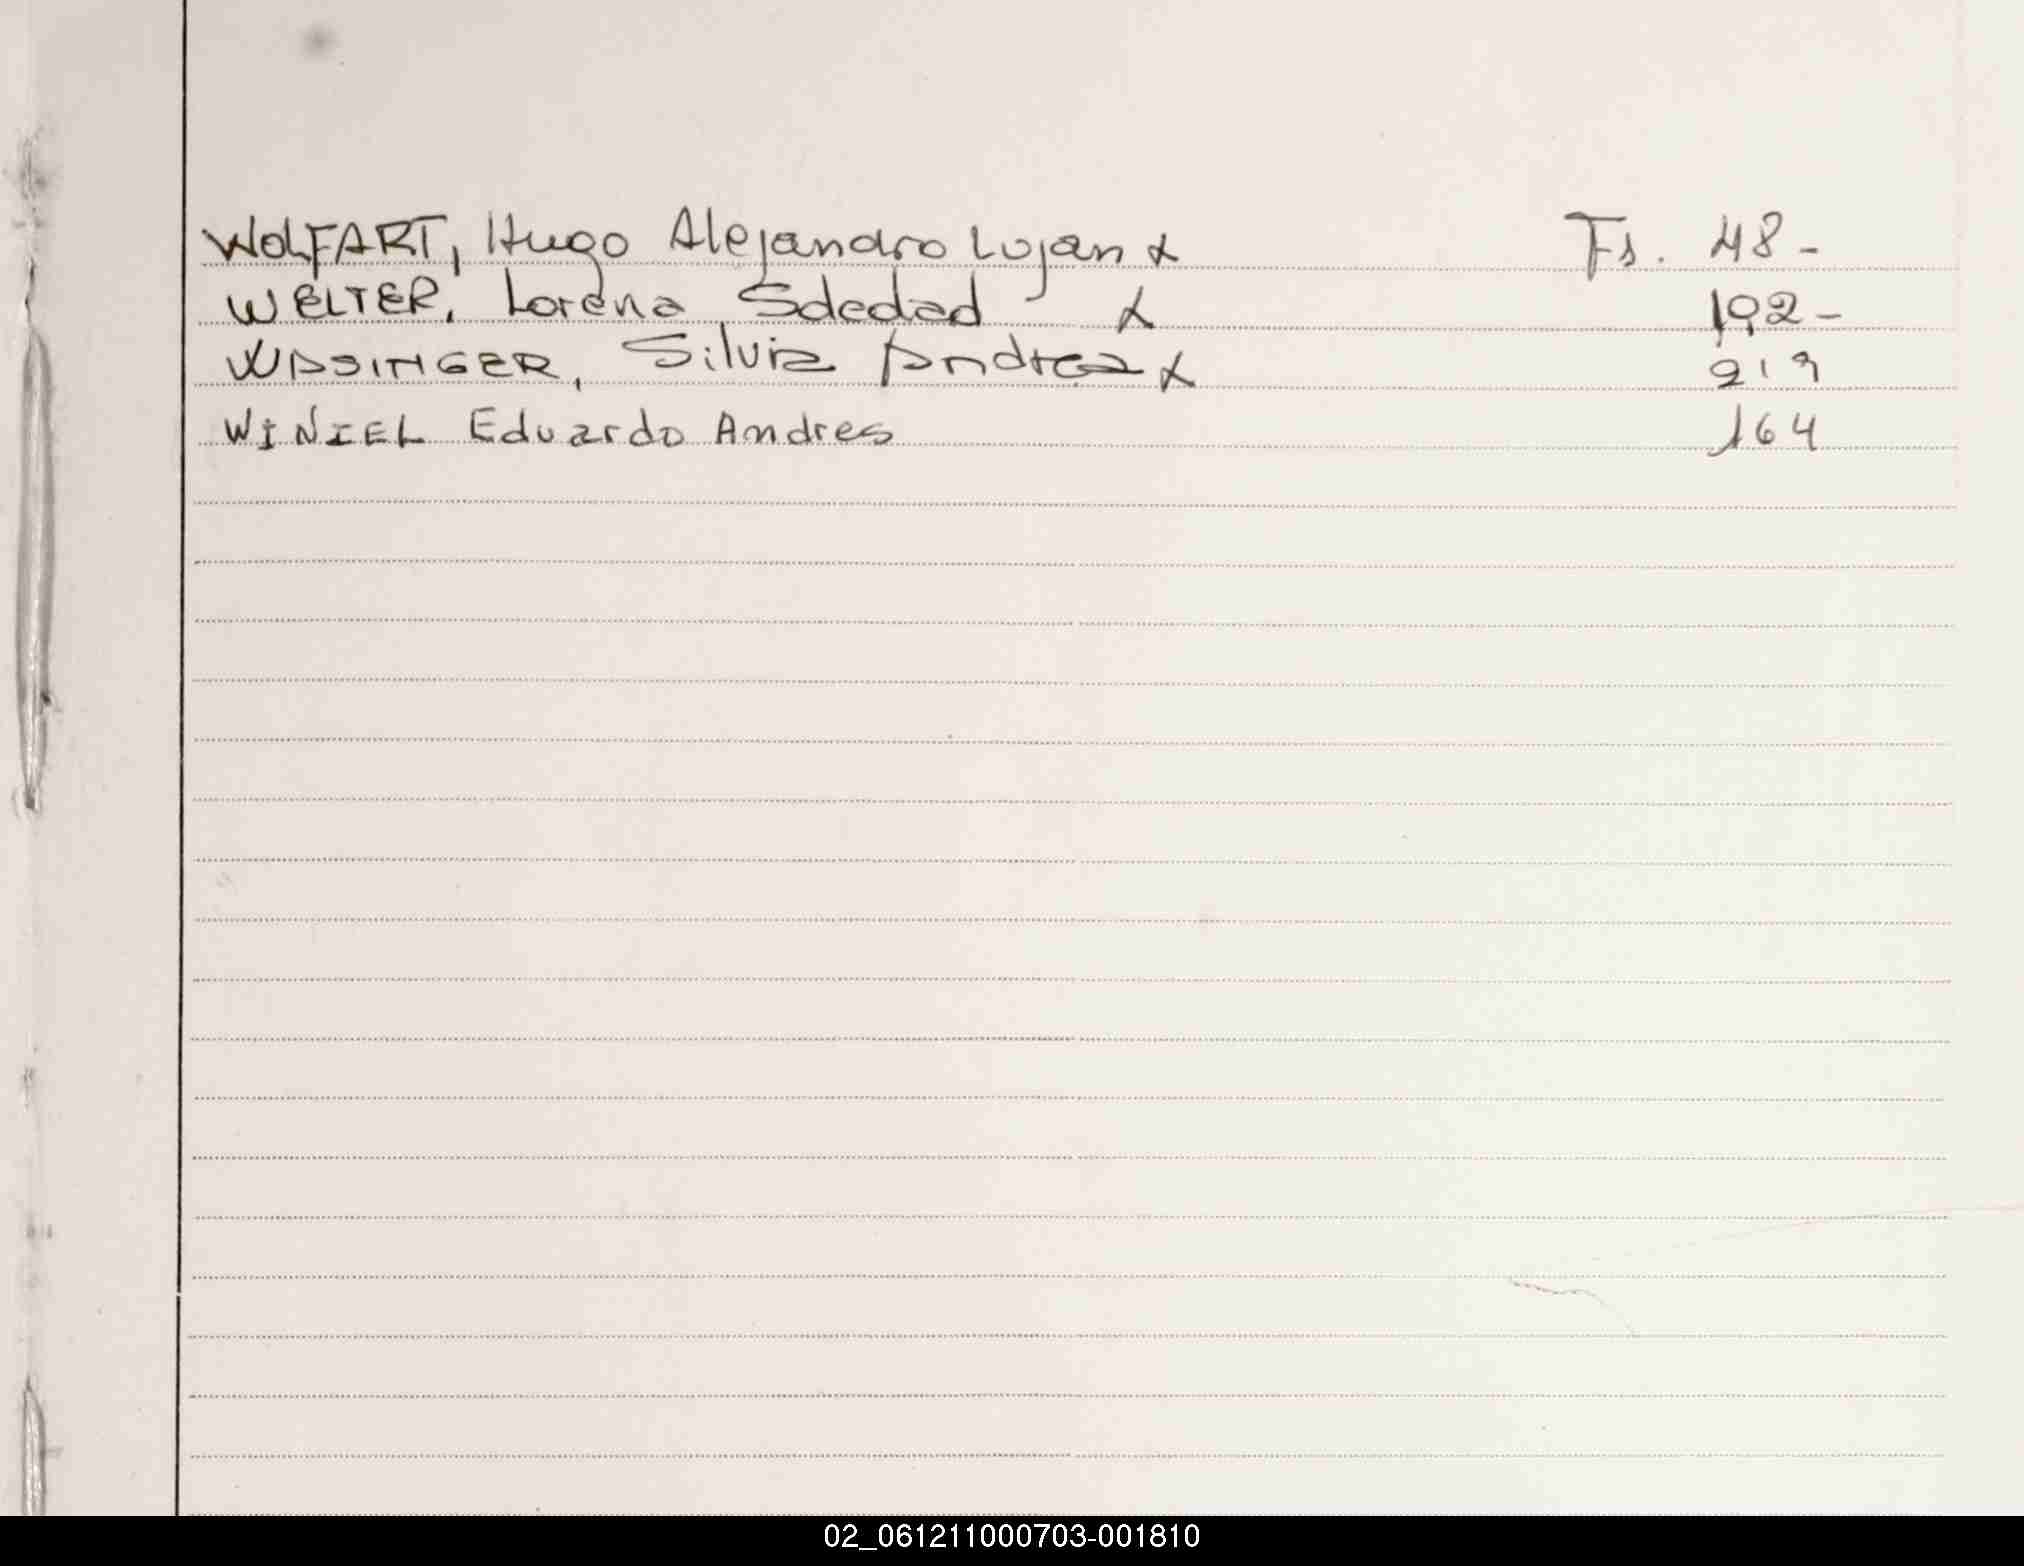 WOLFART, Hugo Alejandro Lujan x Fs. 48-
WELTER, Lorena Soledad x 192-
WASINGER, Silvia Andrea x 219
WINIEL Eduardo Andres 164
02_061211000703-001810